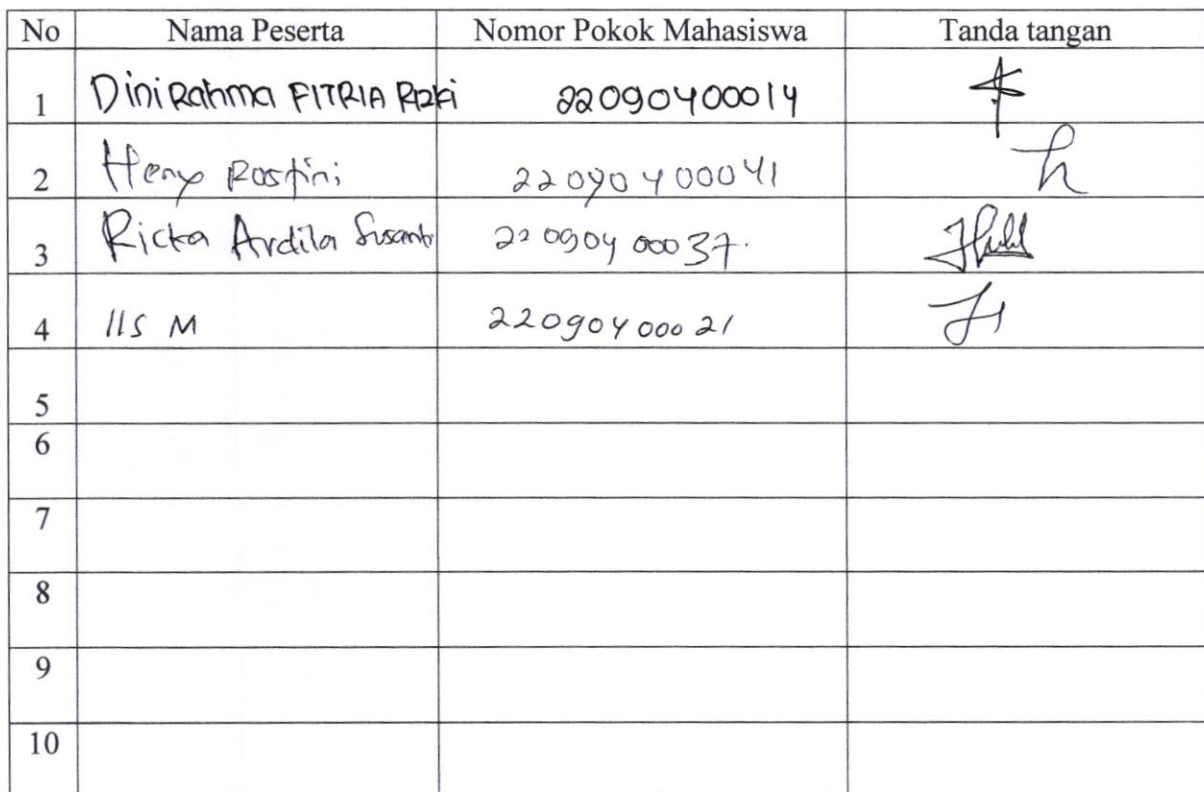 No Nama Peserta Nomor Pokok Mahasiswa Tanda tangan
1 Dini Rahma FITRIA Rizki 22090400014
2 Heny Rostini 22090400041
3 Ricka Ardila Susanti 22090400037.
4 IIS M 22090400021
5
6
7
8
9
10